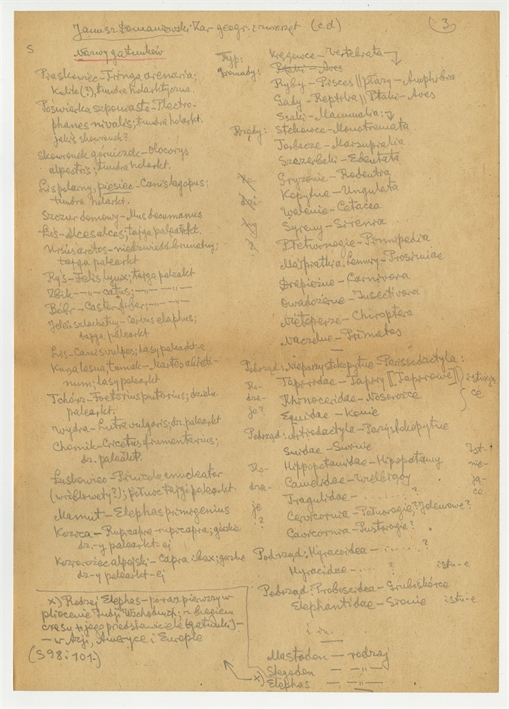 Janusz Domaniewski: Zar. geogr. zwierząt (c.d)
3
S
Nazwy gatunków
Piaskowiec - Tringa arenaria;
tundra holarktyczna.
Poświerka szponiasta - Plectro-
phanes nivalis; tundra holarkt.
jakiś skowronek?
Skowronek górniczek - Otocorys
alpestris; tundra holarkt.
Lis polarny, piesiec - Canis lagopus;
tundra holarkt.
Szczur domowy - Mus decumanus
Łoś - Alces alces; tajga palearkt.
Ursus arctos - niedźwiedź brunatny;
tajga palearkt
Ryś - Felis lynx; tajga palearkt
Żbik - catus;
Bóbr - Castor fiber;
Jeleń szlachetny - Cervus elaphus;
tajga palearkt
Lis - Canis vulpes; lasy palearkt-e
Kuna leśna, tumak - Martes abieti-
num; lasy palearkt
Tchórz - Foetorius putorius;
palearkt.
Wydra - Lutra vulgaris; dz. palearkt
Chomik - Cricetus frumentarius;
dz. palearkt.
Łuskowiec - Pinicola enucleator
Mamut - Elephas primigenius
Kozica - Rupicapra rupicapra; górskie
dz-y palearkt-ej
Koziorożec alpejski - Capra ibex; górskie
dz-y palearkt-ej
x) Rodzaj Elephas - po raz pierwszy w
pliocenie Indyj Wschodnich; z biegiem
czasu
w Azji, Ameryce i Europie
(S 98 i 101.)
Typ: Kręgowce - Vertebrata
gromady: Ptaki - Aves
Ryby - Pisces || Płazy - Amphibia
Gady - Reptilia || Ptaki - Aves
Ssaki - Mammalia:
Rzędy: Stekowce - Monotremata
Torbacze - Marsupialia
Szczerbaki - Edentata
Gryzonie - Rodentia
Kopytne - Ungulata
Walenie - Cetacea
Syreny - Sirenia
Płetwonogie - Pinnipedia
Małpiatki, Lemury - Prosimiae
Drapieżne - Carnivora
Owadożerne - Insectivora
Nietoperze - Chiroptera
Naczelne - Primates
Podrząd: Nieparzystokopytne - Perissodactyla:
Ro- Tapiridae - Tapiry
dzi- Rhinoceridae - Nosorożce
je? Equidae - Konie
Podrząd: Artiodactyla - Parzystokopytne
Suidae - Świnie
Ro- Hippopotamidae - Hipopotamy
dzi- Camelidae - Wielbłądy
Tragulidae - ?
je Cervicornia - Pełnorogie? Jeleniowe?
? Cavicornia - Pustorogie?
Podrząd: Hyracoidea - ?
Hyracidae - istn-e
Podrząd: Proboscidea - Gruboskórce
Elephantidae - Słonie istn-e
Mastodon - rodzaj
Stegodon - " -
x) Elephas - " -